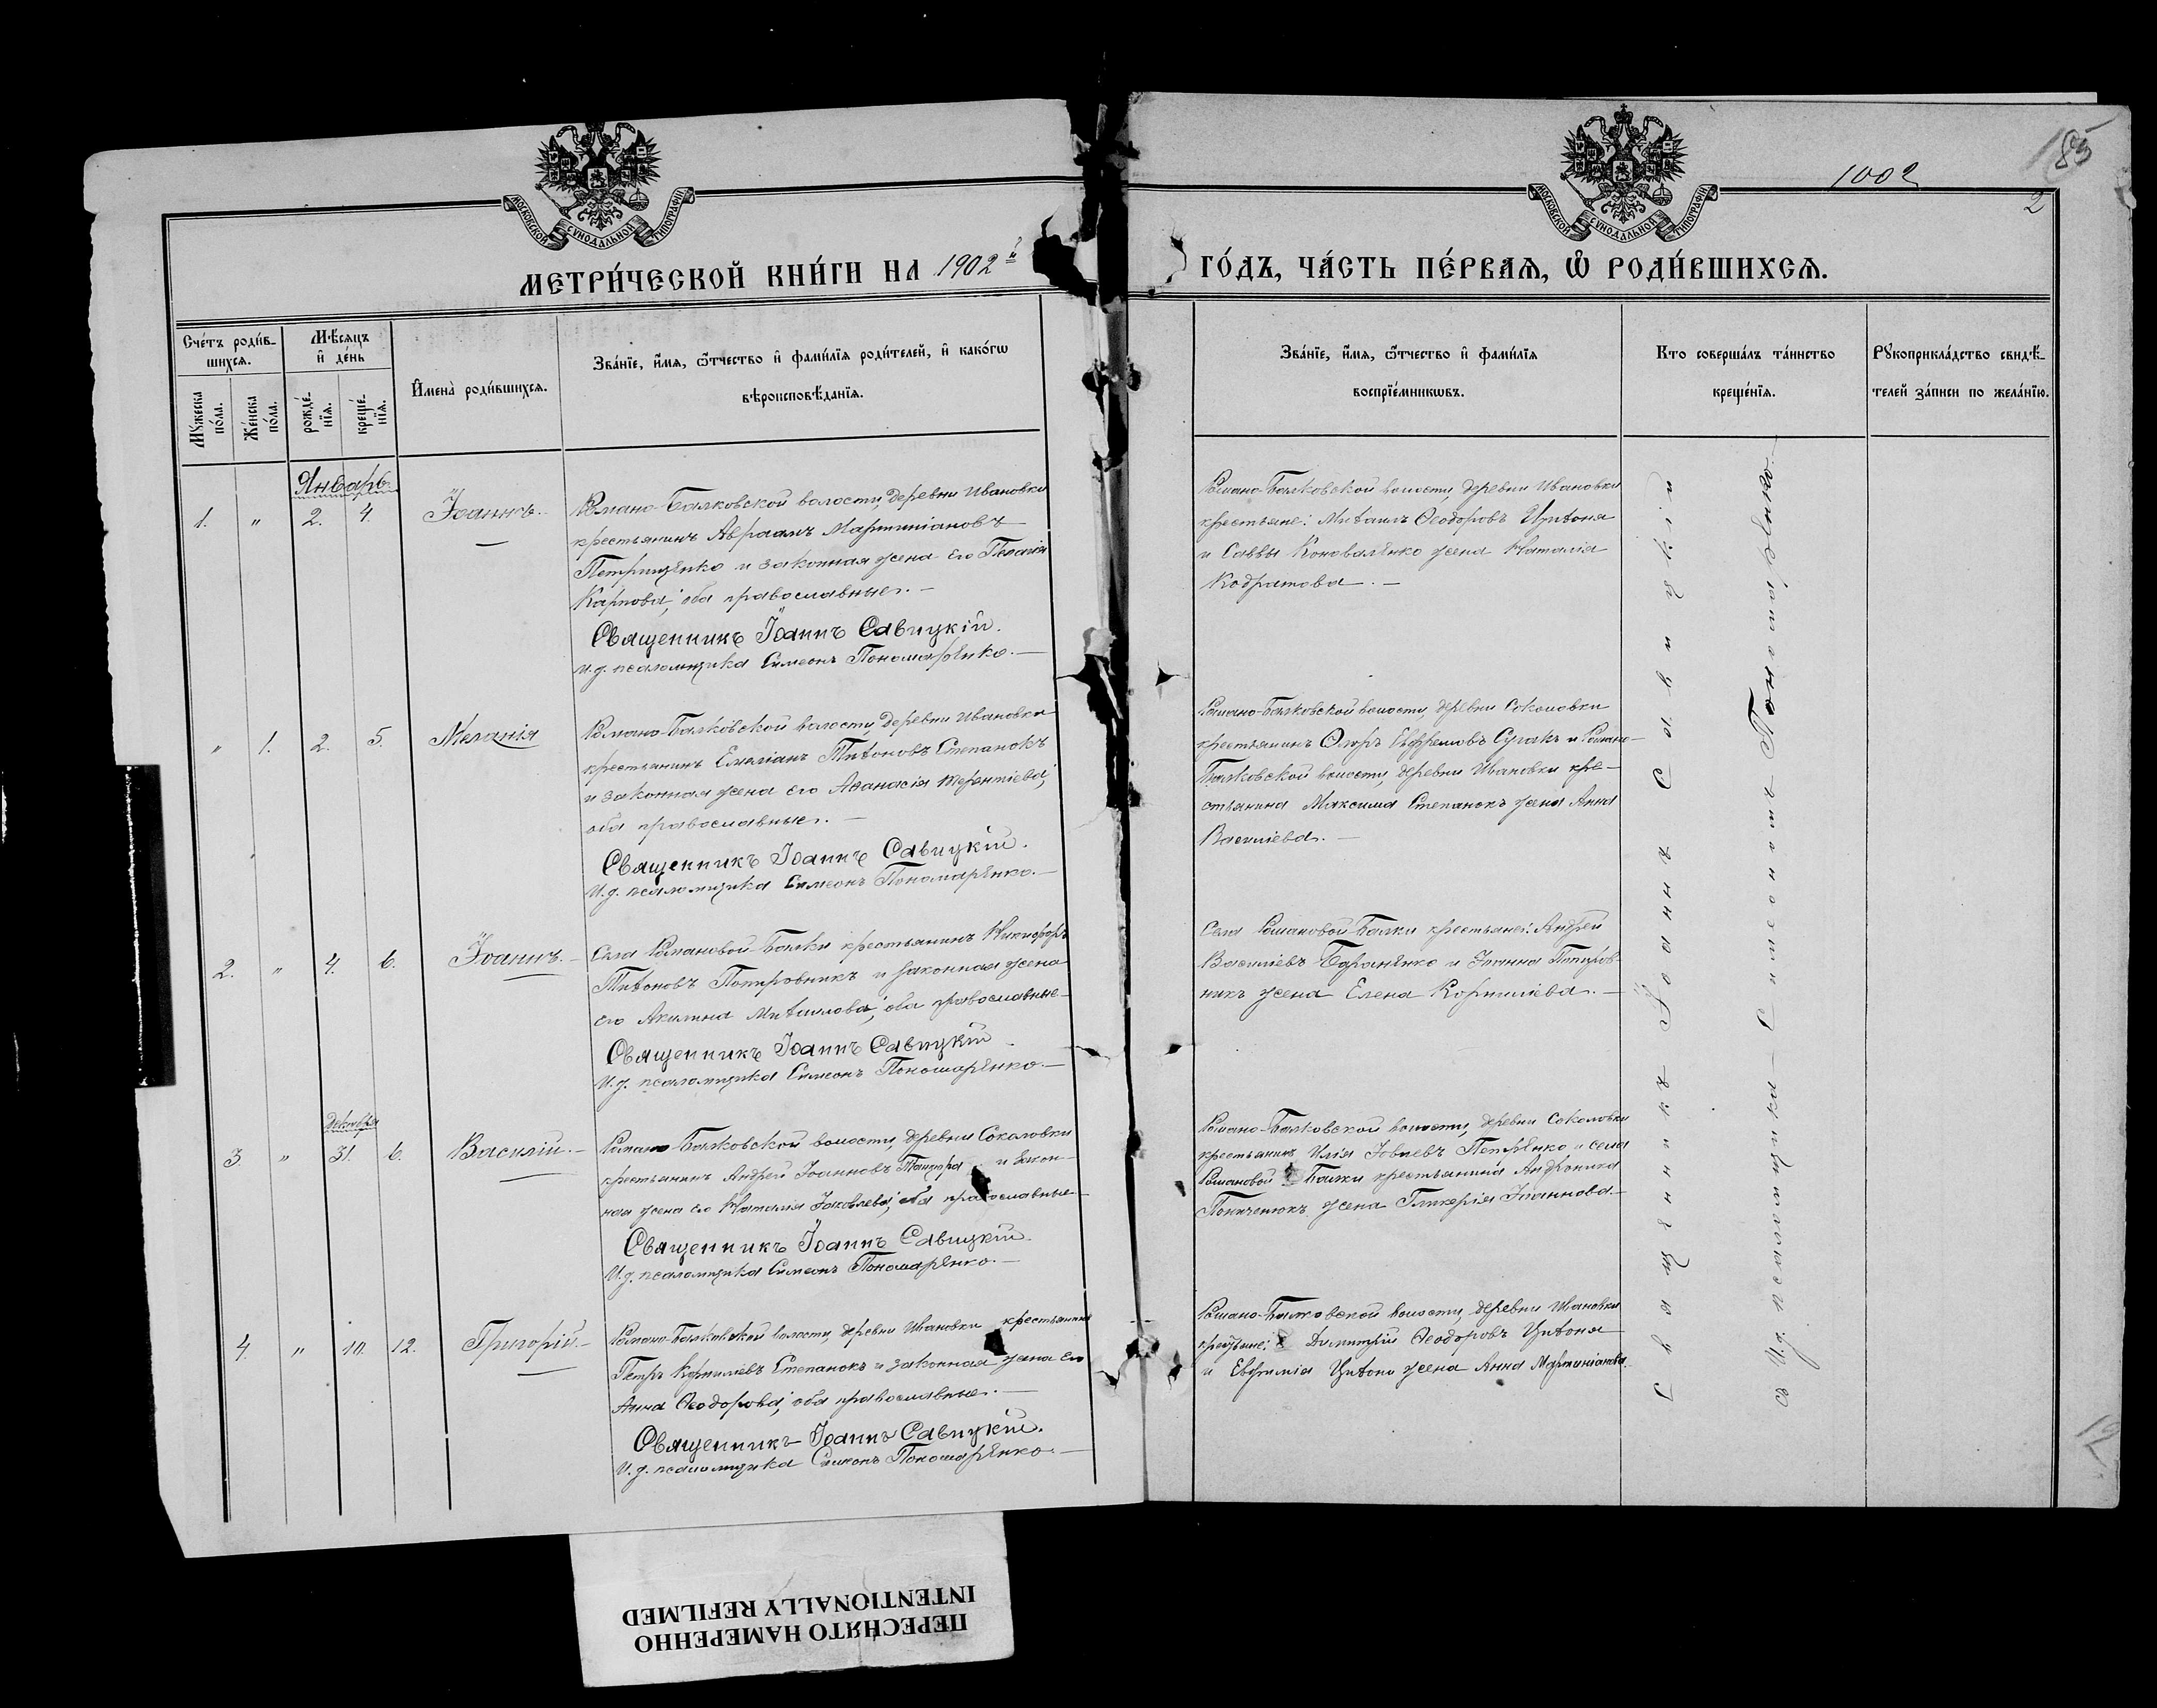 МОСКОВСКОЙ СУНОДАЛЬНОЙ ТИПОГРАФІИ
МОСКОВСКОЙ СУНОДАЛЬНОЙ ТИПОГРАФІИ
1902
185
2
МЕТРИ́ЧЕСКОЙ КНИ́ГИ НА 1902й
ГО́ДЪ, ЧА́СТЬ ПЕ́РВАѦ, Ѡ҆ РОДИ́ВШИХСѦ.
Сче́тъ роди́в-
шихсѧ.
Мꙋжеска по́ла.
Же́нска по́ла.
Мѣ́сѧцъ
и҆ де́нь
рожде́-
нїѧ.
креще́-
нїѧ.
И҆мена̀ роди́вшихсѧ.
Зва́нїе, и҆́мѧ, ѻ҆́тчество и҆ фами́лїѧ роди́телей, и҆ како́гѡ
вѣроисповѣ́данїѧ.
Зва́нїе, и҆́мѧ, ѻ҆́тчество и҆ фами́лїѧ
воспрїе́мникѡвъ.
Кто соверша́лъ та́инство
креще́нїѧ.
Рꙋкоприкла́дство свидѣ́-
телей за́писи по жела́нїю.
Январь.
1. " 2. 4. Іоаннъ.
Романо-Балковской волости, деревни Ивановки
крестьянинъ Авраамъ Мартиніановъ
Петрищенко и законная жена его Пелагія
Карпова; оба православные.
Священникъ Іоаннъ Савицкій.
И. д. псаломщика Симеонъ Пономаренко.
Романо-Балковской волости, деревни Ивановки
крестьяне: Михаилъ Ѳеодоровъ Цихоня
и Саввы Коноваленко жена Наталія
Кодратова.
" 1. 2. 5. Меланія
Романо-Балковской волости, деревни Ивановки
крестьянинъ Емиліанъ Тихоновъ Степанокъ
и законная жена его Аѳанасія Терентіева;
оба православные.
Священникъ Іоаннъ Савицкій.
И. д. псаломщика Симеонъ Пономаренко.
Романо-Балковской волости, деревни Соколовки
крестьянинъ Ефремовъ и Романо-
Балковской волости, деревни Ивановки кре-
стьянина Максима Степанокъ жена Анна
Василіева.
2. " 4. 6. Іоаннъ.
Села Романовой-Балки крестьянинъ Никифоръ
Тихоновъ Попировникъ и законная жена
его Акилина Михаилова; оба православные
Священникъ Іоаннъ Савицкій
И. д. псаломщика Симеонъ Пономаренко.
Села Романовой-Балки крестьяне: Андрей
Василіевъ Бараненко и Іоанна Попиров-
никъ жена Елена Корнилиева.
декабря
3. " 31. 6. Василій.
Романо-Балковской волости, деревни Соколовки
крестьянинъ Андрей Іоанновъ и закон-
ная жена его Наталія Іаковлева; оба православные
Священникъ Іоаннъ Савицкій.
И. д. псаломщика Симеонъ Пономаренко.
Романо-Балковской волости, деревни Соколовки
крестьянинъ Илія Іовлевъ Петренко и села
Романовой Балки крестьянина Андроника
жена Гликерія Іоаннова.
4. " 10. 12. Григорій.
Романо-Балковской волости, деревни Ивановки крестьянинъ
Петръ Корниліевъ Степанокъ и законная жена его
Анна Ѳеодорова; оба православные.
Священникъ Іоаннъ Савицкій.
И. д. псаломщика Симеонъ Пономаренко.
Романо-Балковской волости, деревни Ивановки
крестьяне: Димитрій Ѳеодоровъ Цихоня
и Евфимія Цихони жена Анна Мартиніанова.
Священникъ Іоаннъ Савицкій
съ И. д. псаломщика Симеономъ Пономаренко.
12
ПЕРЕСНЯТО НАМЕРЕННО
INTENTIONALLY REFILMED